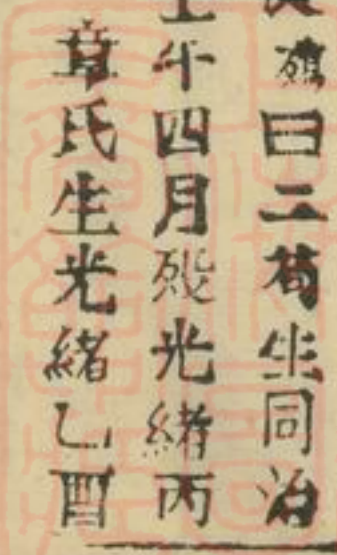 曰二苟生同治
午四月殁光緒丙
章氏生光緒乙酉